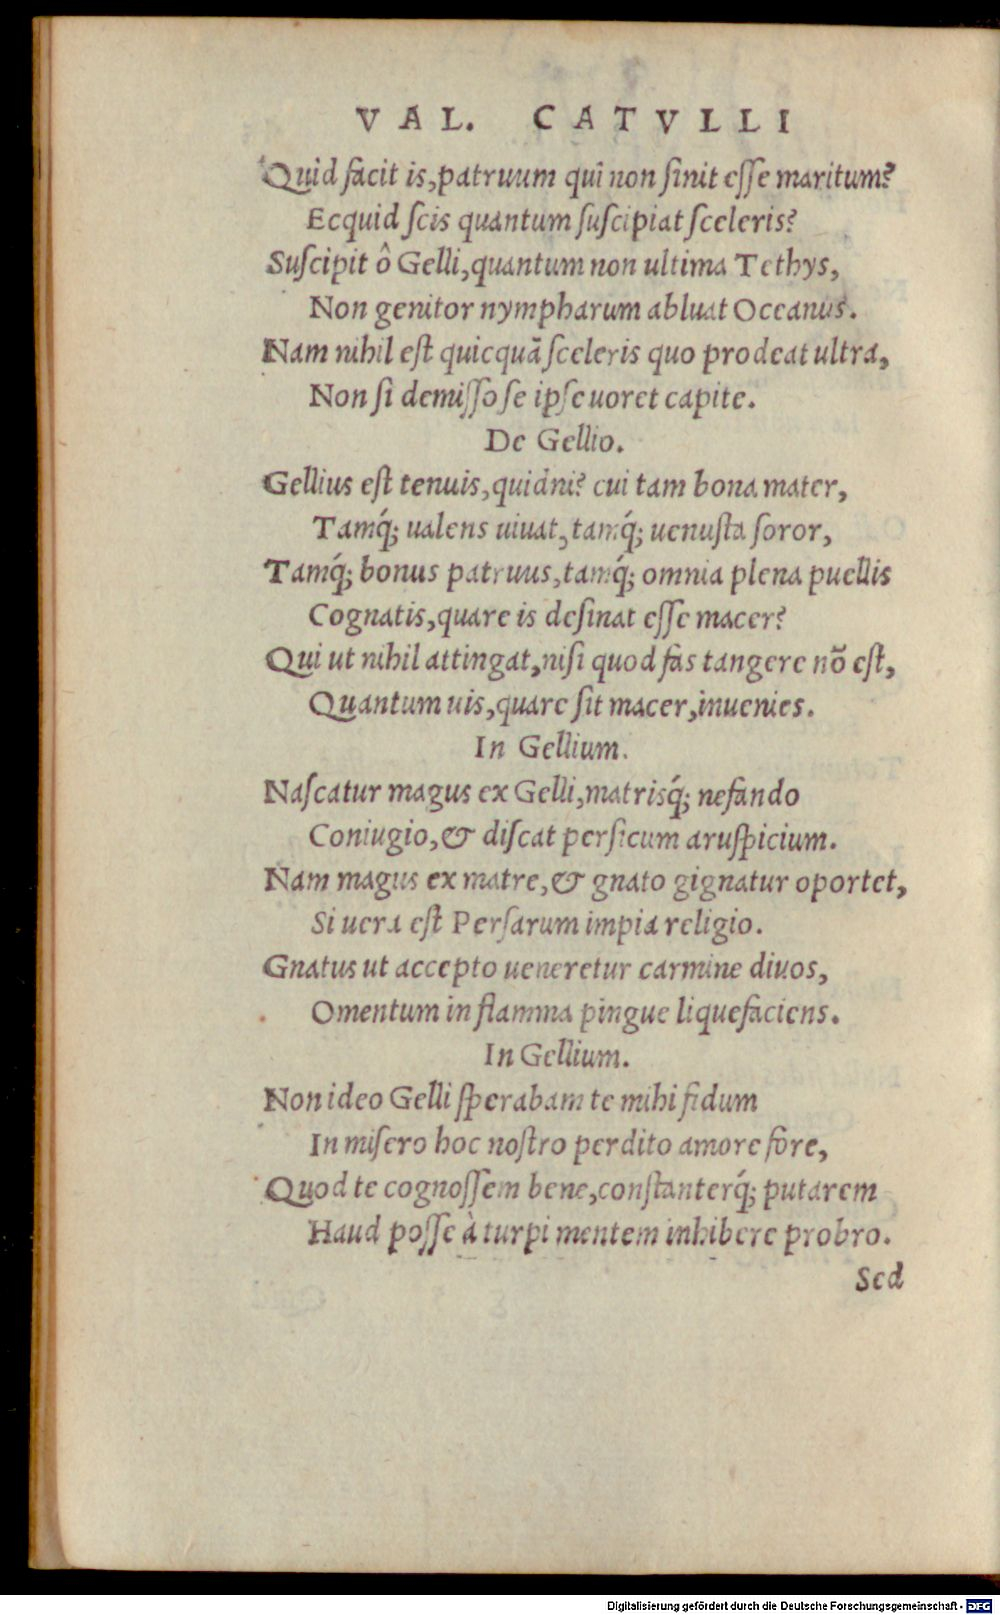 VAL. CATVLLI
Quid facit is, patruum qui non ſinit eſſe maritum?
Ecquid ſcis quantum ſuſcipiat ſceleris?
Suſcipit ô Gelli, quantum non ultima Tethys,
Non genitor nympharum abluat Oceanus.
Nam nihil eſt quicquã ſceleris quo prodeat ultra,
Non ſi demiſſo ſe ipſe uoret capite.
De Gellio.
Gellius eſt tenuis, quidni? cui tam bona mater,
Tamq́; ualens uiuat, tamq́; uenuſta ſoror,
Tamq́; bonus patruus, tamq́; omnia plena puellis
Cognatis, quare is deſinat eſſe macer?
Qui ut nihil attingat, niſi quod fas tangere nõ eſt,
Quantum uis, quare ſit macer, inuenies.
In Gellium.
Naſcatur magus ex Gelli, matrisq́; nefando
Coniugio, & diſcat perſicum aruſpicium.
Nam magus ex matre, & gnato gignatur oportet,
Si uera eſt Perſarum impia religio.
Gnatus ut accepto ueneretur carmine diuos,
Omentum in flamma pingue liquefaciens.
In Gellium.
Non ideo Gelli ſperabam te mihi fidum
In miſero hoc noſtro perdito amore fore,
Quod te cognoſſem bene, conſtanterq́; putarem
Haud poſſe à turpi mentem inhibere probro.
Sed
Digitalisierung gefördert durch die Deutsche Forschungsgemeinschaft - DFG